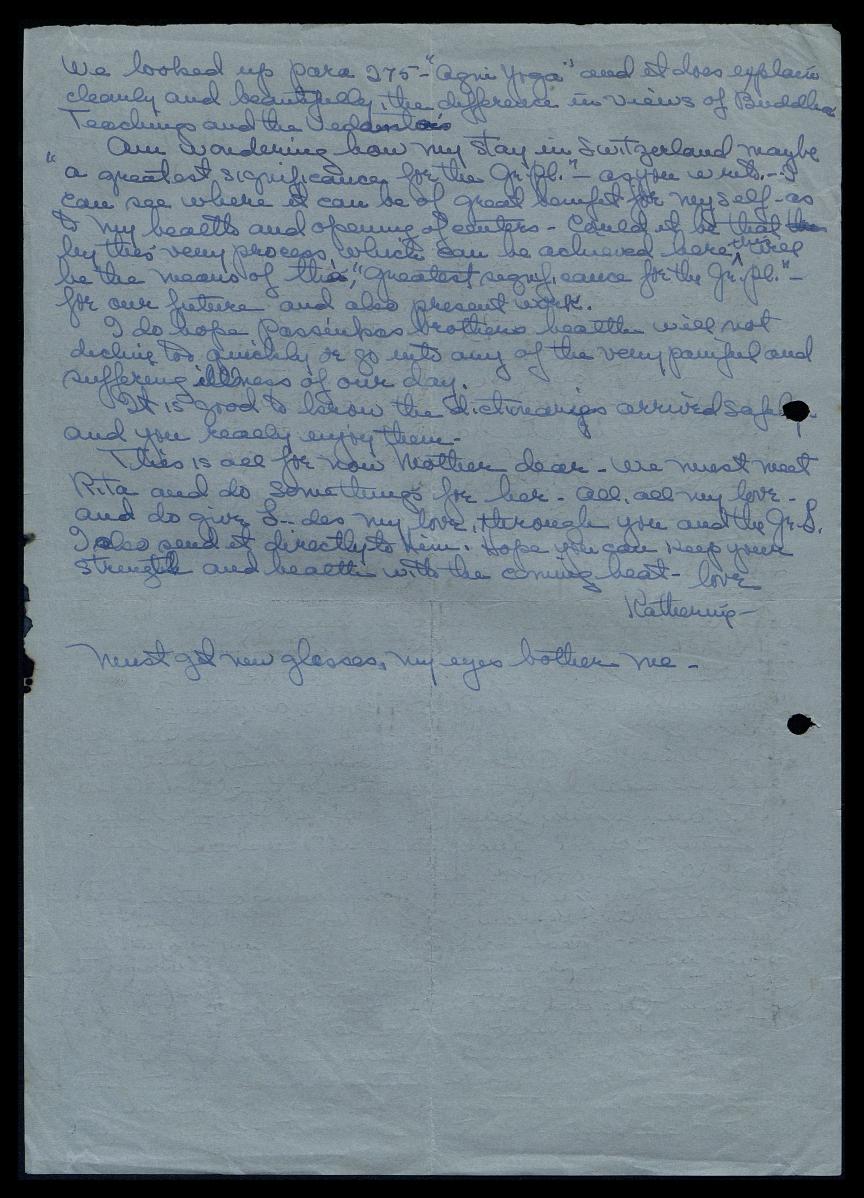 We looked up para 275 - "Agni Yoga" and it does explain
clearly and beautifully, the difference in views of Buddha
Teachings and the Vedantas
Am wondering how my stay in Switzerland maybe
"a greatest significance for the Gr. Pl." - as you write. - I
can see where it can be of great benefit for myself - as
to my health and opening of centers - Could it be that
by this very process, which can be achieved here, this will
be the means of the, "greatest significance for the Gr. Pl." -
for our future and also present work.
I do hope Passinkas brothers health will not
decline too quickly or go into any of the very painful and
suffering illness of our day.
It is good to know the dictionaries arrived safely
and you really enjoy them -
This is all for now Mother dear - We must meet
Rita and do somethings for her - All, all my love -
and do give S-- des my love, through you and the Gr. S.
I also send it directly to Him. Hope you can keep your
strength and health with the coming heat - love
Katherine -
Must get new glasses, my eyes bother me -